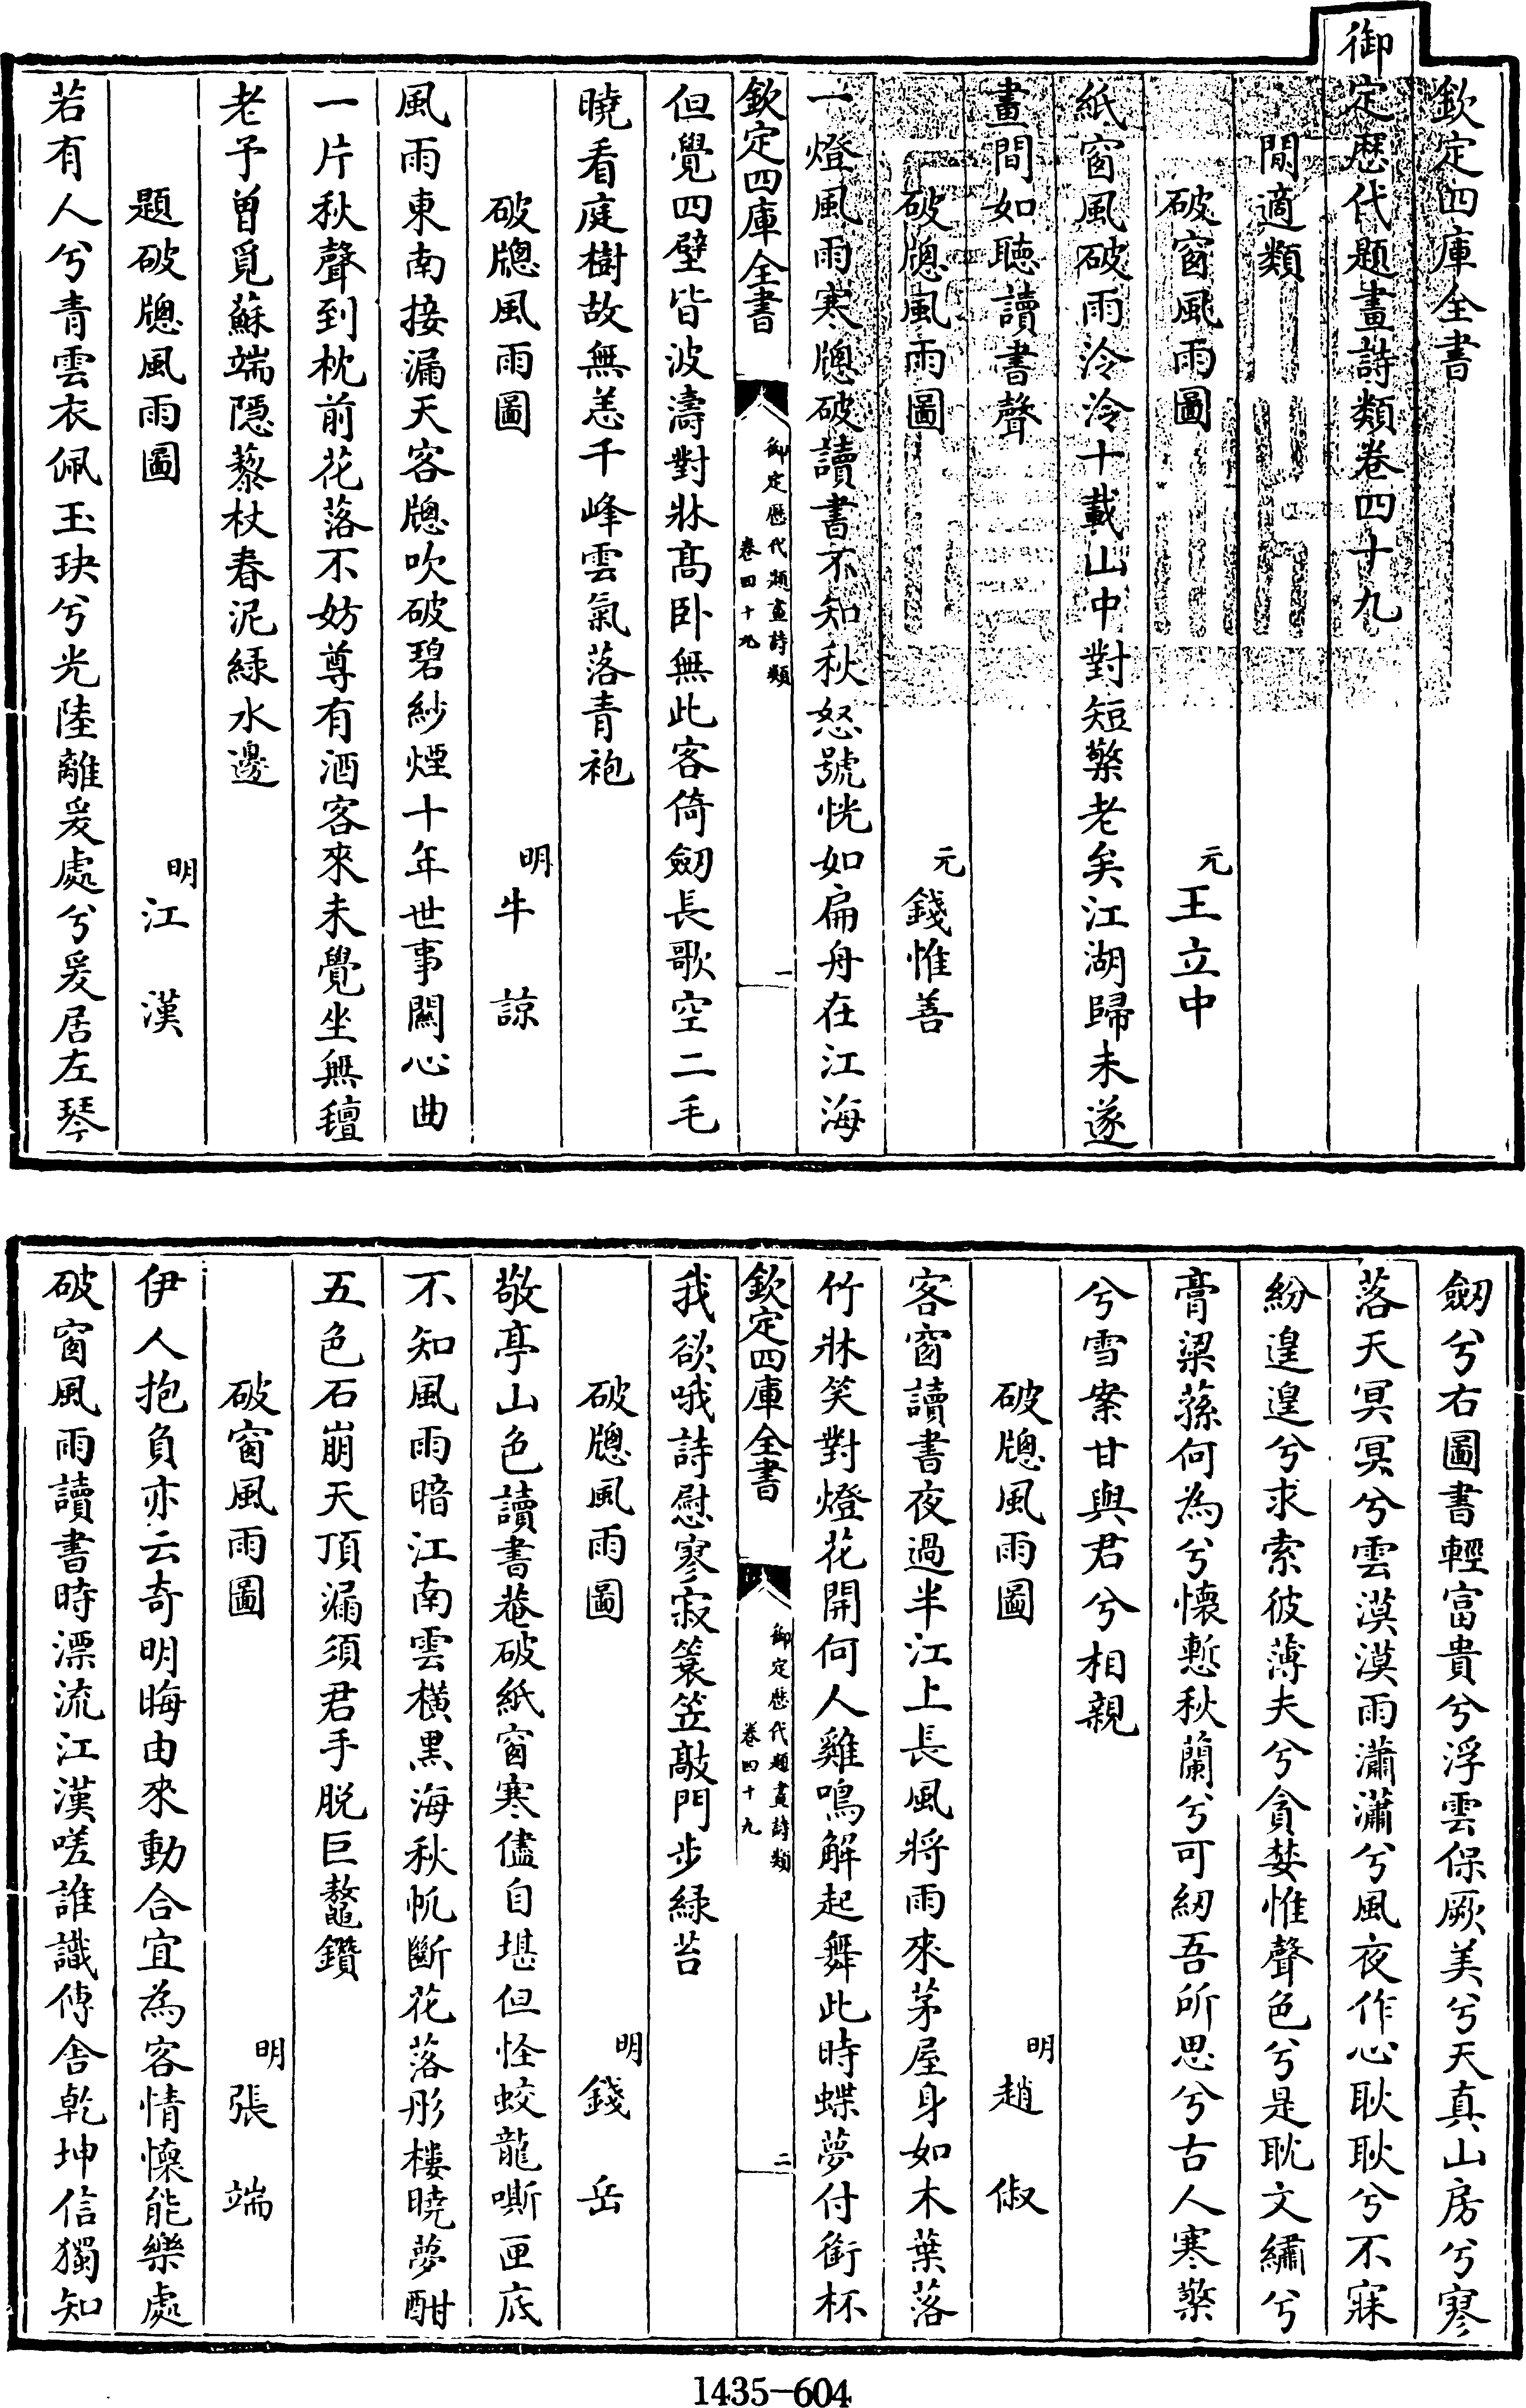 欽定四庫全書
御定歷代題畫詩類卷四十九
閒適類
破窗風雨圖 元 王立中
紙窗風破雨泠泠十載山中對短檠老矣江湖歸未遂
畫間如聽讀書聲
破牕風雨圖 元 錢惟善
一燈風雨寒牕破讀書不知秋怒號恍如扁舟在江海
欽定四庫全書 御定歷代題畫詩類 卷四十九 一
但覺四壁皆波濤對牀高卧無此客倚劒長歌空二毛
曉看庭樹故無恙千峰雲氣落青袍
破牕風雨圖 明 牛諒
風雨東南接漏天客牕吹破碧紗煙十年世事關心曲
一片秋聲到枕前花落不妨尊有酒客來未覺坐無氊
老予曾覓蘇端隱藜杖春泥綠水邊
題破牕風雨圖 明 江漢
若有人兮青雲衣佩玉玦兮光陸離爰處兮爰居左琴
劒兮右圖書輕富貴兮浮雲保厥美兮天真山房兮寥
落天冥冥兮雲漠漠雨瀟瀟兮風夜作心耿耿兮不寐
紛遑遑兮求索彼薄夫兮貪婪惟聲色兮是耽文繡兮
膏粱蓀何為兮懷慙秋蘭兮可紉吾所思兮古人寒檠
兮雪案甘與君兮相親
破牕風雨圖 明 趙俶
客窗讀書夜過半江上長風將雨來茅屋身如木葉落
竹牀笑對燈花開何人雞鳴解起舞此時蝶夢付銜杯
欽定四庫全書 御定歷代題畫詩類 卷四十九 二
我欲哦詩慰寥寂簑笠敲門步綠苔
破牕風雨圖 明 錢岳
敬亭山色讀書菴破紙窗寒儘自堪但怪蛟龍嘶匣底
不知風雨暗江南雲橫黒海秋帆斷花落彤樓曉夢酣
五色石崩天頂漏須君手脱巨鼇鑽
破窗風雨圖 明 張端
伊人抱負亦云奇明晦由來動合宜為客情懷能樂處
破窗風雨讀書時漂流江漢嗟誰識傳舍乾坤信獨知
1435-604